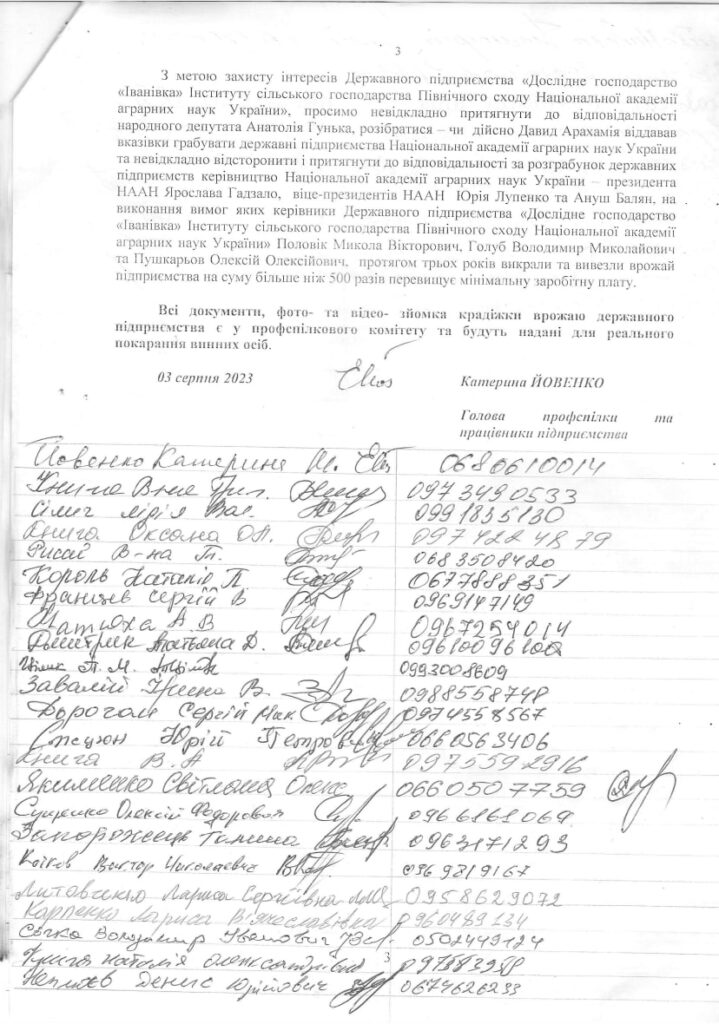 3
З метою захисту інтересів Державного підприємства «Дослідне господарство
«Іванівка» Інституту сільського господарства Північного сходу Національної академії
аграрних наук України», просимо невідкладно притягнути до відповідальності
народного депутата Анатолія Гунька, розібратися – чи дійсно Давид Арахамія віддавав
вказівки грабувати державні підприємства Національної академії аграрних наук України
та невідкладно відсторонити і притягнути до відповідальності за розграбунок державних
підприємств керівництво Національної академії аграрних наук України – президента
НААН Ярослава Гадзало, віце-президентів НААН Юрія Лупенко та Ануш Балян, на
виконання вимог яких керівники Державного підприємства «Дослідне господарство
«Іванівка» Інституту сільського господарства Північного сходу Національної академії
аграрних наук України» Половік Микола Вікторович, Голуб Володимир Миколайович
та Пушкарьов Олексій Олексійович. протягом трьох років викрали та вивезли врожай
підприємства на суму більше ніж 500 разів перевищує мінімальну заробітну плату.
Всі документи, фото- та відео- зйомка крадіжки врожаю державного
підприємства є у профспілкового комітету та будуть надані для реального
покарання винних осіб.
03 серпня 2023 Катерина ЙОВЕНКО
Голова профспілки та
працівники підприємства
Йовенко Катерина М. 0680610014
Книга 0973490533
Марія 0991835130
Книга Оксана О.П. 0974224879
В-на Т. 0683508420
Король Наталія П 0677888351
Францев Сергій В 0969147149
Матюха А. В 0967254014
Дмитрик Татьяна Д. 0961009610
П. М. 0993008609
Завалій Ірина В. 0988558748
Сергій Мик. 0974558567
Юрій Петрович 0660563406
Книга В. А 0975592916
Якименко Світлана Олекс 0660507759
Сущенко Олексій Федорович 0966161069
Запорожець Галина 0963171293
Коїков Виктор Николаевич 0969819167
Литовченко Лариса Сергіївна 0958629072
Карпенко Лариса В'ячеславівна 0960489134
Сочка Володимир Іванович 0502449124
3
Книга Наталія Олександрівна
Денис Юрійович 0674626233